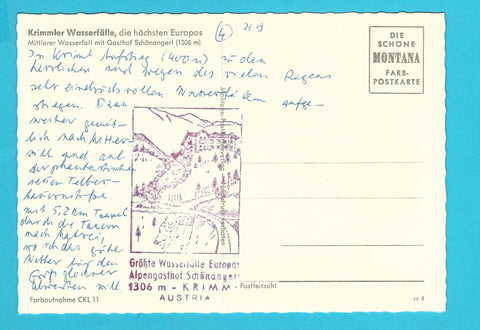 Krimmler Wasserfälle, die höchsten Europas
Mittlerer Wasserfall mit Gasthof Schönangerl (1306 m)
4
21.9
DIE
SCHÖNE
MONTANA
FARB-
POSTKARTE
In Krimml Aufstieg (400 m) zu den
herrlichen und wegen des vielen Regens
sehr eindrucksvollen Wasserfällen aufge-
stiegen. Dann
weiter gemüt-
lich nach Mitter-
sill und auf
der phantastischen
neuen Felber-
tauernstraße
mit 5,2 km Tunnel
durch die Tauern
nach Matrei,
wo ich das gute
Wetter für den
Großglockner
abwarten will
Größte Wasserfälle Europas
Alpengasthof Schönangerl
1306 m - KRIMML
AUSTRIA
Postleitzahl
Farbaufnahme CKL 11
rr 4